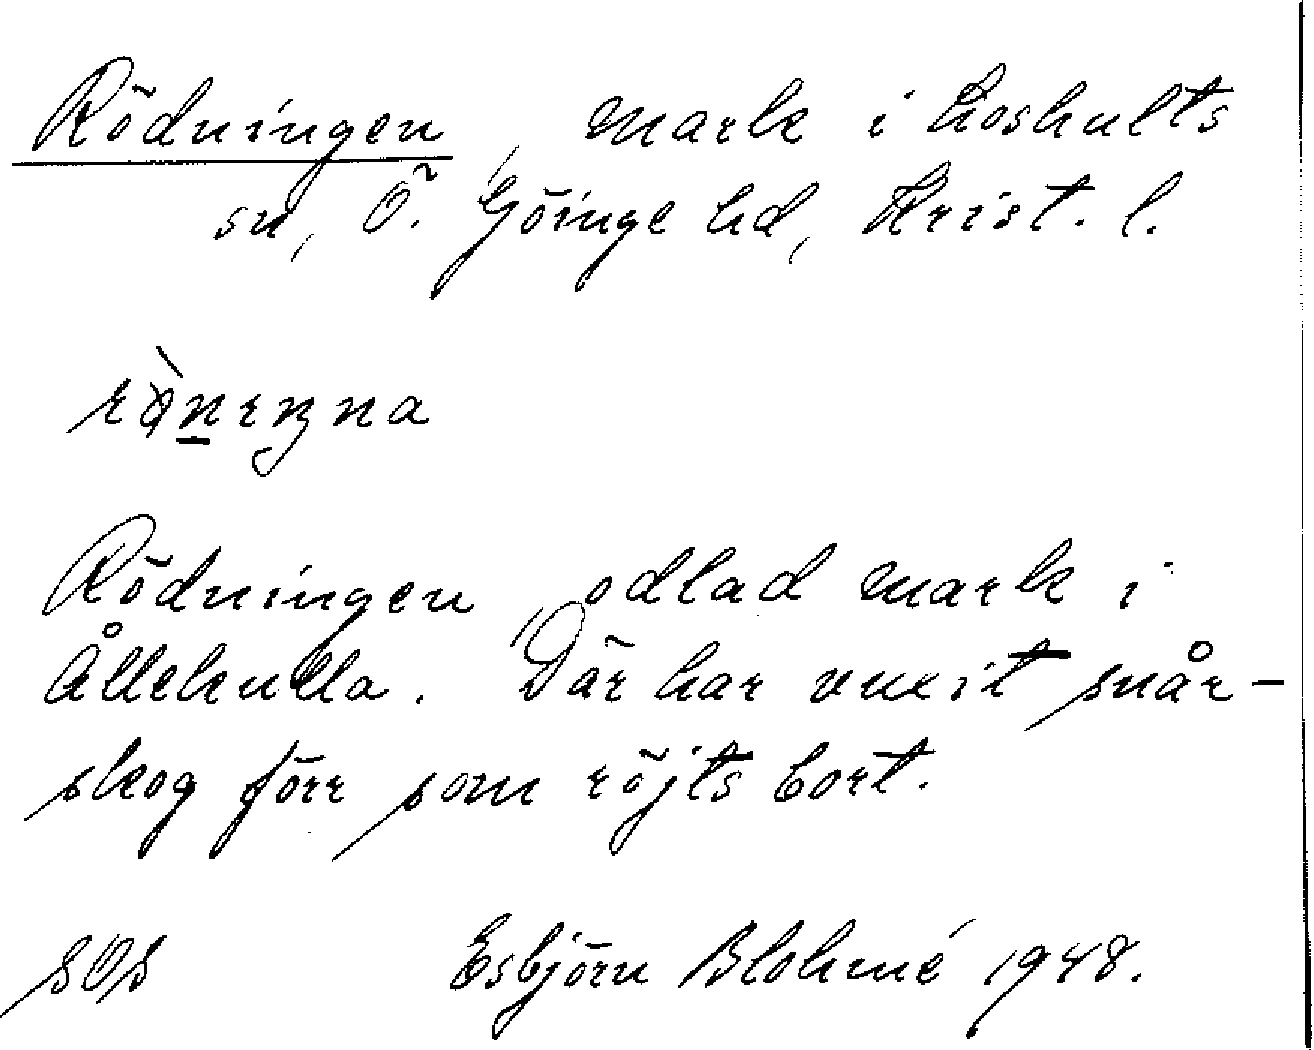 Rödningen, mark i Loshults
sn, Ö. Göinge hd, Krist. l.
Rödningen, odlad mark i
Ållekulla. Där har vuxit snår-
skog förr som röjts bort.
sOs Esbjörn Blohmé 1948.